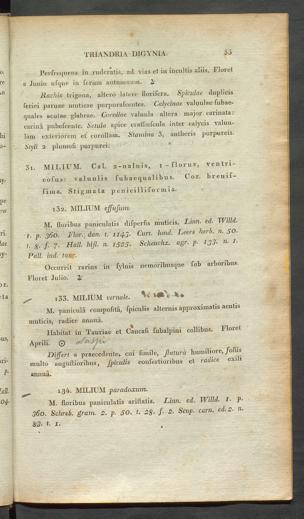 TRIANDRIA DIGYNIA. 53
Perfrequens in ruderatis, ad vias et in incultis aliis. Floret
e Junio usque in serum autumnum. ♃
Rachis trigona, altero latere florifera. Spiculae duplicis
seriei paruae muticae purpurascentes. Calycinae valuulae subae-
quales acutae glabrae. Corollae valuula altera major carinata:
carina pubescente. Setula apice crassiuscula inter calycis valuu-
lam exteriorem et corollam. Stamina 3, antheris purpureis.
Styli 2 plumosi purpurei:
31. MILIUM. Cal. 2-valuis, 1-florus, ventri-
cosus: valuulis subaequalibus. Cor. breuis-
sima. Stigmata penicilliformia.
132. MILIUM effusum.
M. floribus paniculatis dispersis muticis. Linn. ed. Willd.
1. p. 360. Flor. dan. t. 1143. Curt. lond. Leers herb. n. 50.
t. 8. f. 7. Hall. hist. n. 1525. Scheuchz. agr. p. 133. n. 1.
Pall. ind. taur.
Occurrit rarius in sylvis nemoribusque sub arboribus.
Floret Julio. ♃
133. MILIUM vernale.
M. panicula composita, spiculis alternis approximatis acutis
muticis, radice annua.
Habitat in Tauriae et Caucasi subalpini collibus. Floret
Aprili. ☉
Differt a praecedente, cui simile, statura humiliore, foliis
multo angustioribus, spiculis confertioribus et radice exili
annua.
134. MILIUM paradoxum.
M. floribus paniculatis aristatis. Linn. ed. Willd. 1. p.
360. Schreb. gram. 2. p. 50. t. 28. f. 2. Scop. carn. ed. 2. n.
83. t. 1.